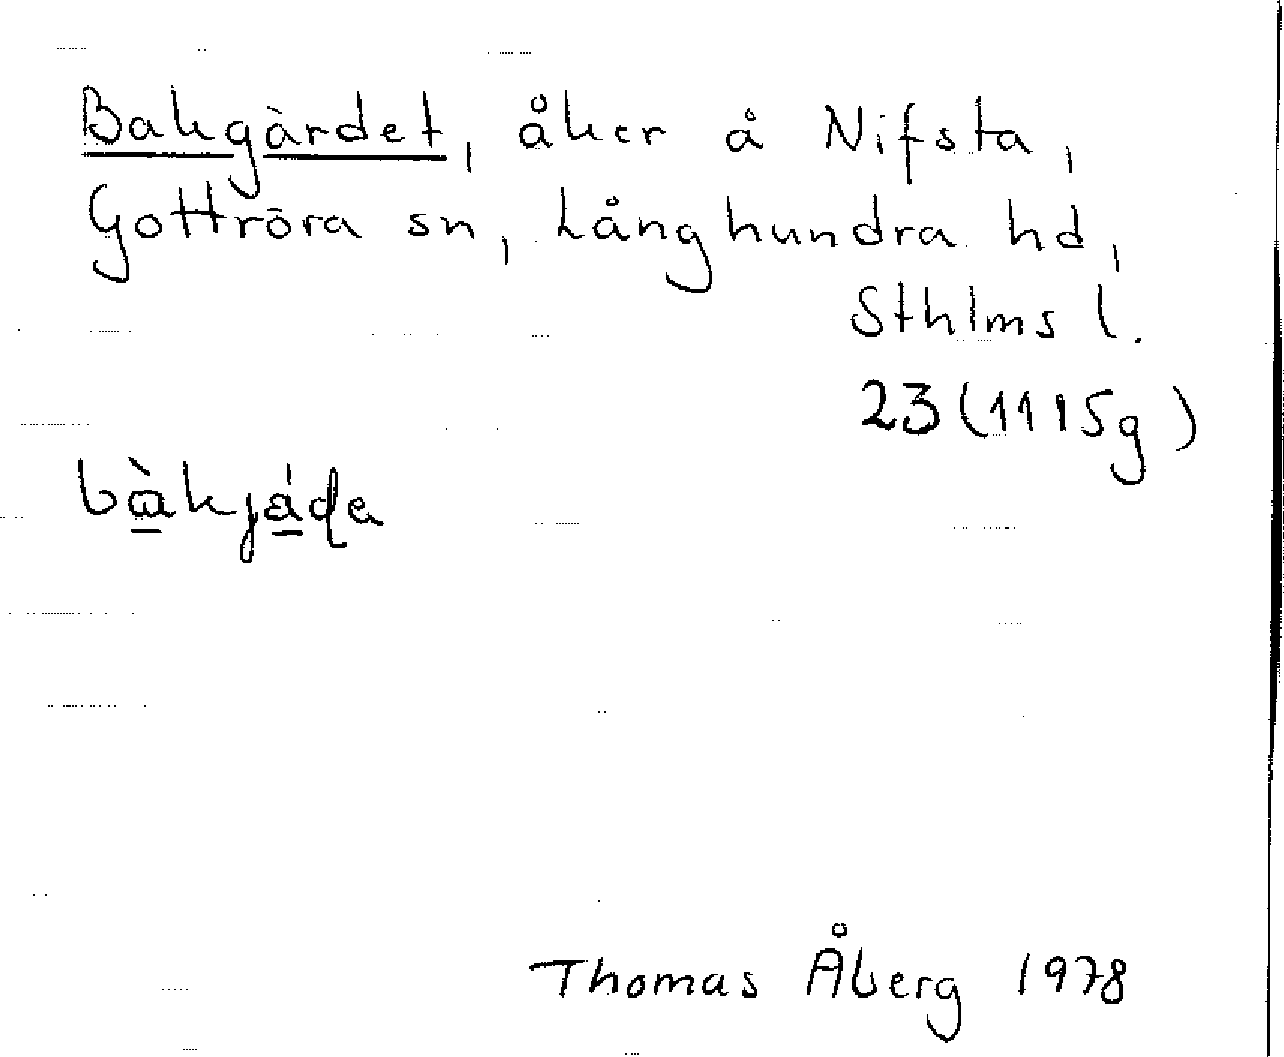 Bakgärdet, åker å Nifsta,
Gottröra sn, Långhundra hd,
Sthlms l.
23 (1115g)
bàkjáḍa
Thomas Åberg 1978